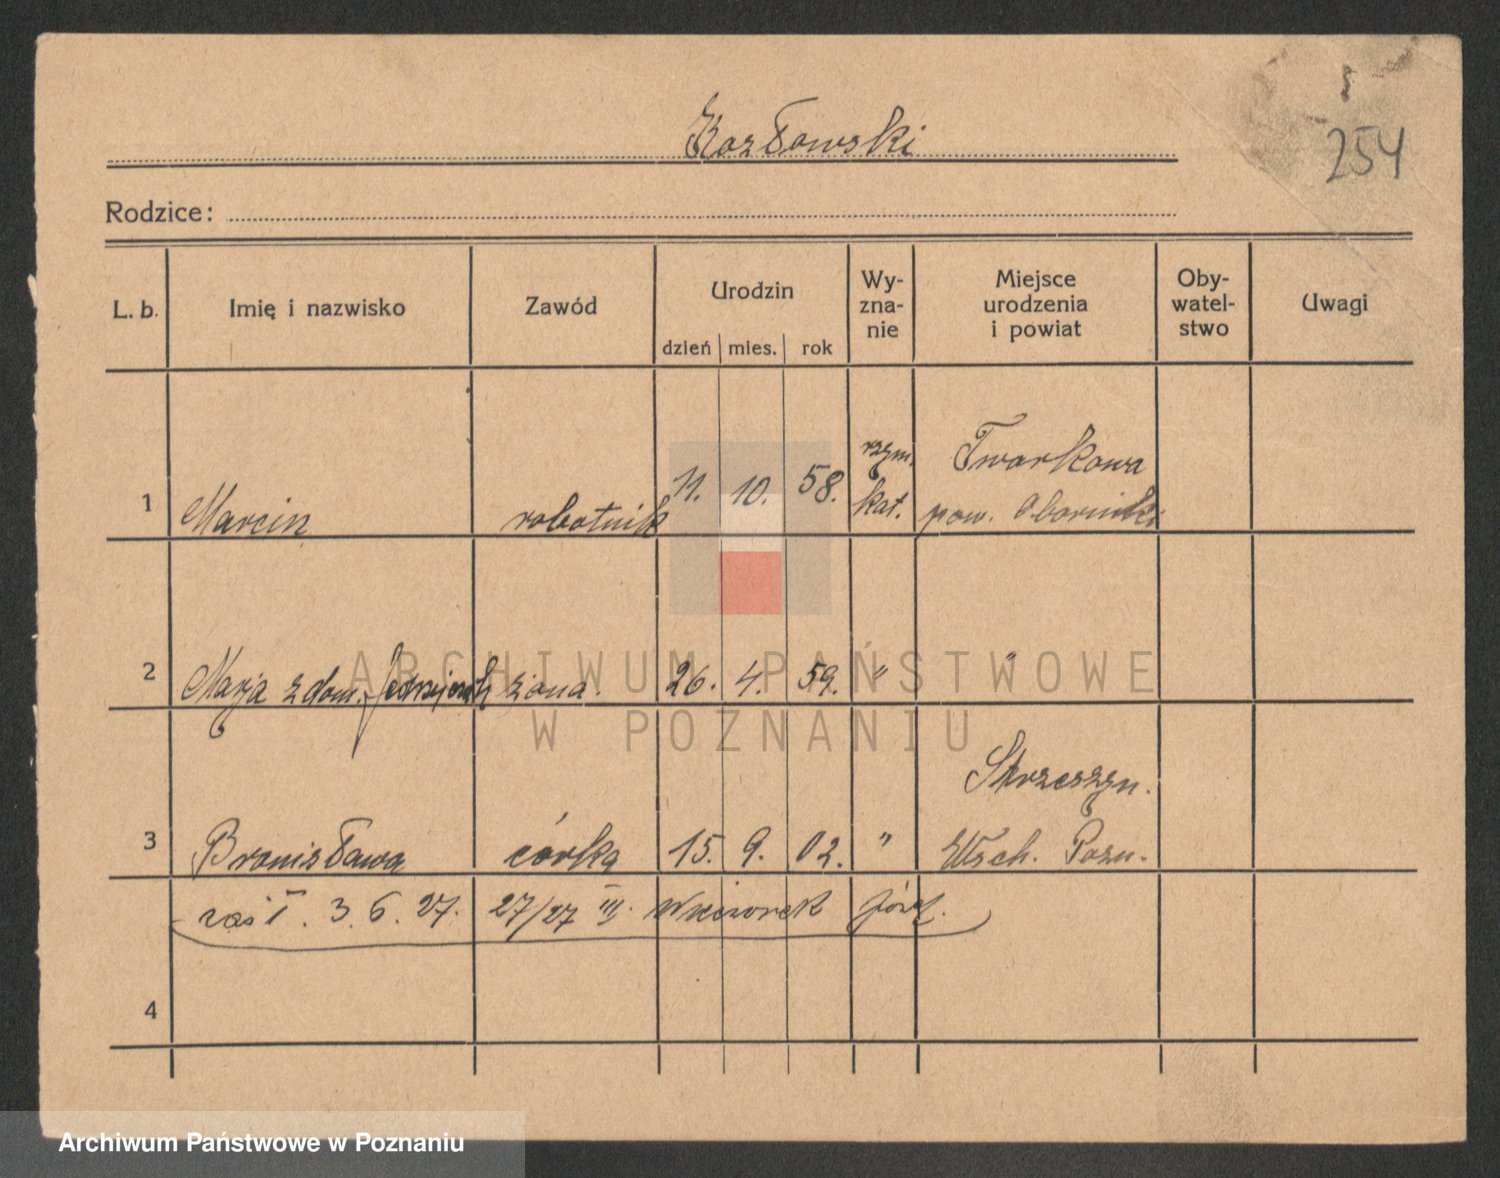 Kozłowski
254
Rodzice:
L. b. Imię i nazwisko Zawód Urodzin dzień mies. rok Wy-zna-nie Miejsce urodzenia i powiat Oby-watel-stwo Uwagi
1 Marcin robotnik 11. 10. 58. rzym. kat. Twarkowa pow. Obornicki
2 Marja z dom. żona. 26. 4. 59. " "
Strzeszyn.
3 Bronisława córka 15. 9. 02. " Wsch. Pozn.
zaś I. 3.6.27. 27/27 III. Wieczorek Józef.
4
ARCHIWUM PAŃSTWOWE
W POZNANIU
Archiwum Państwowe w Poznaniu